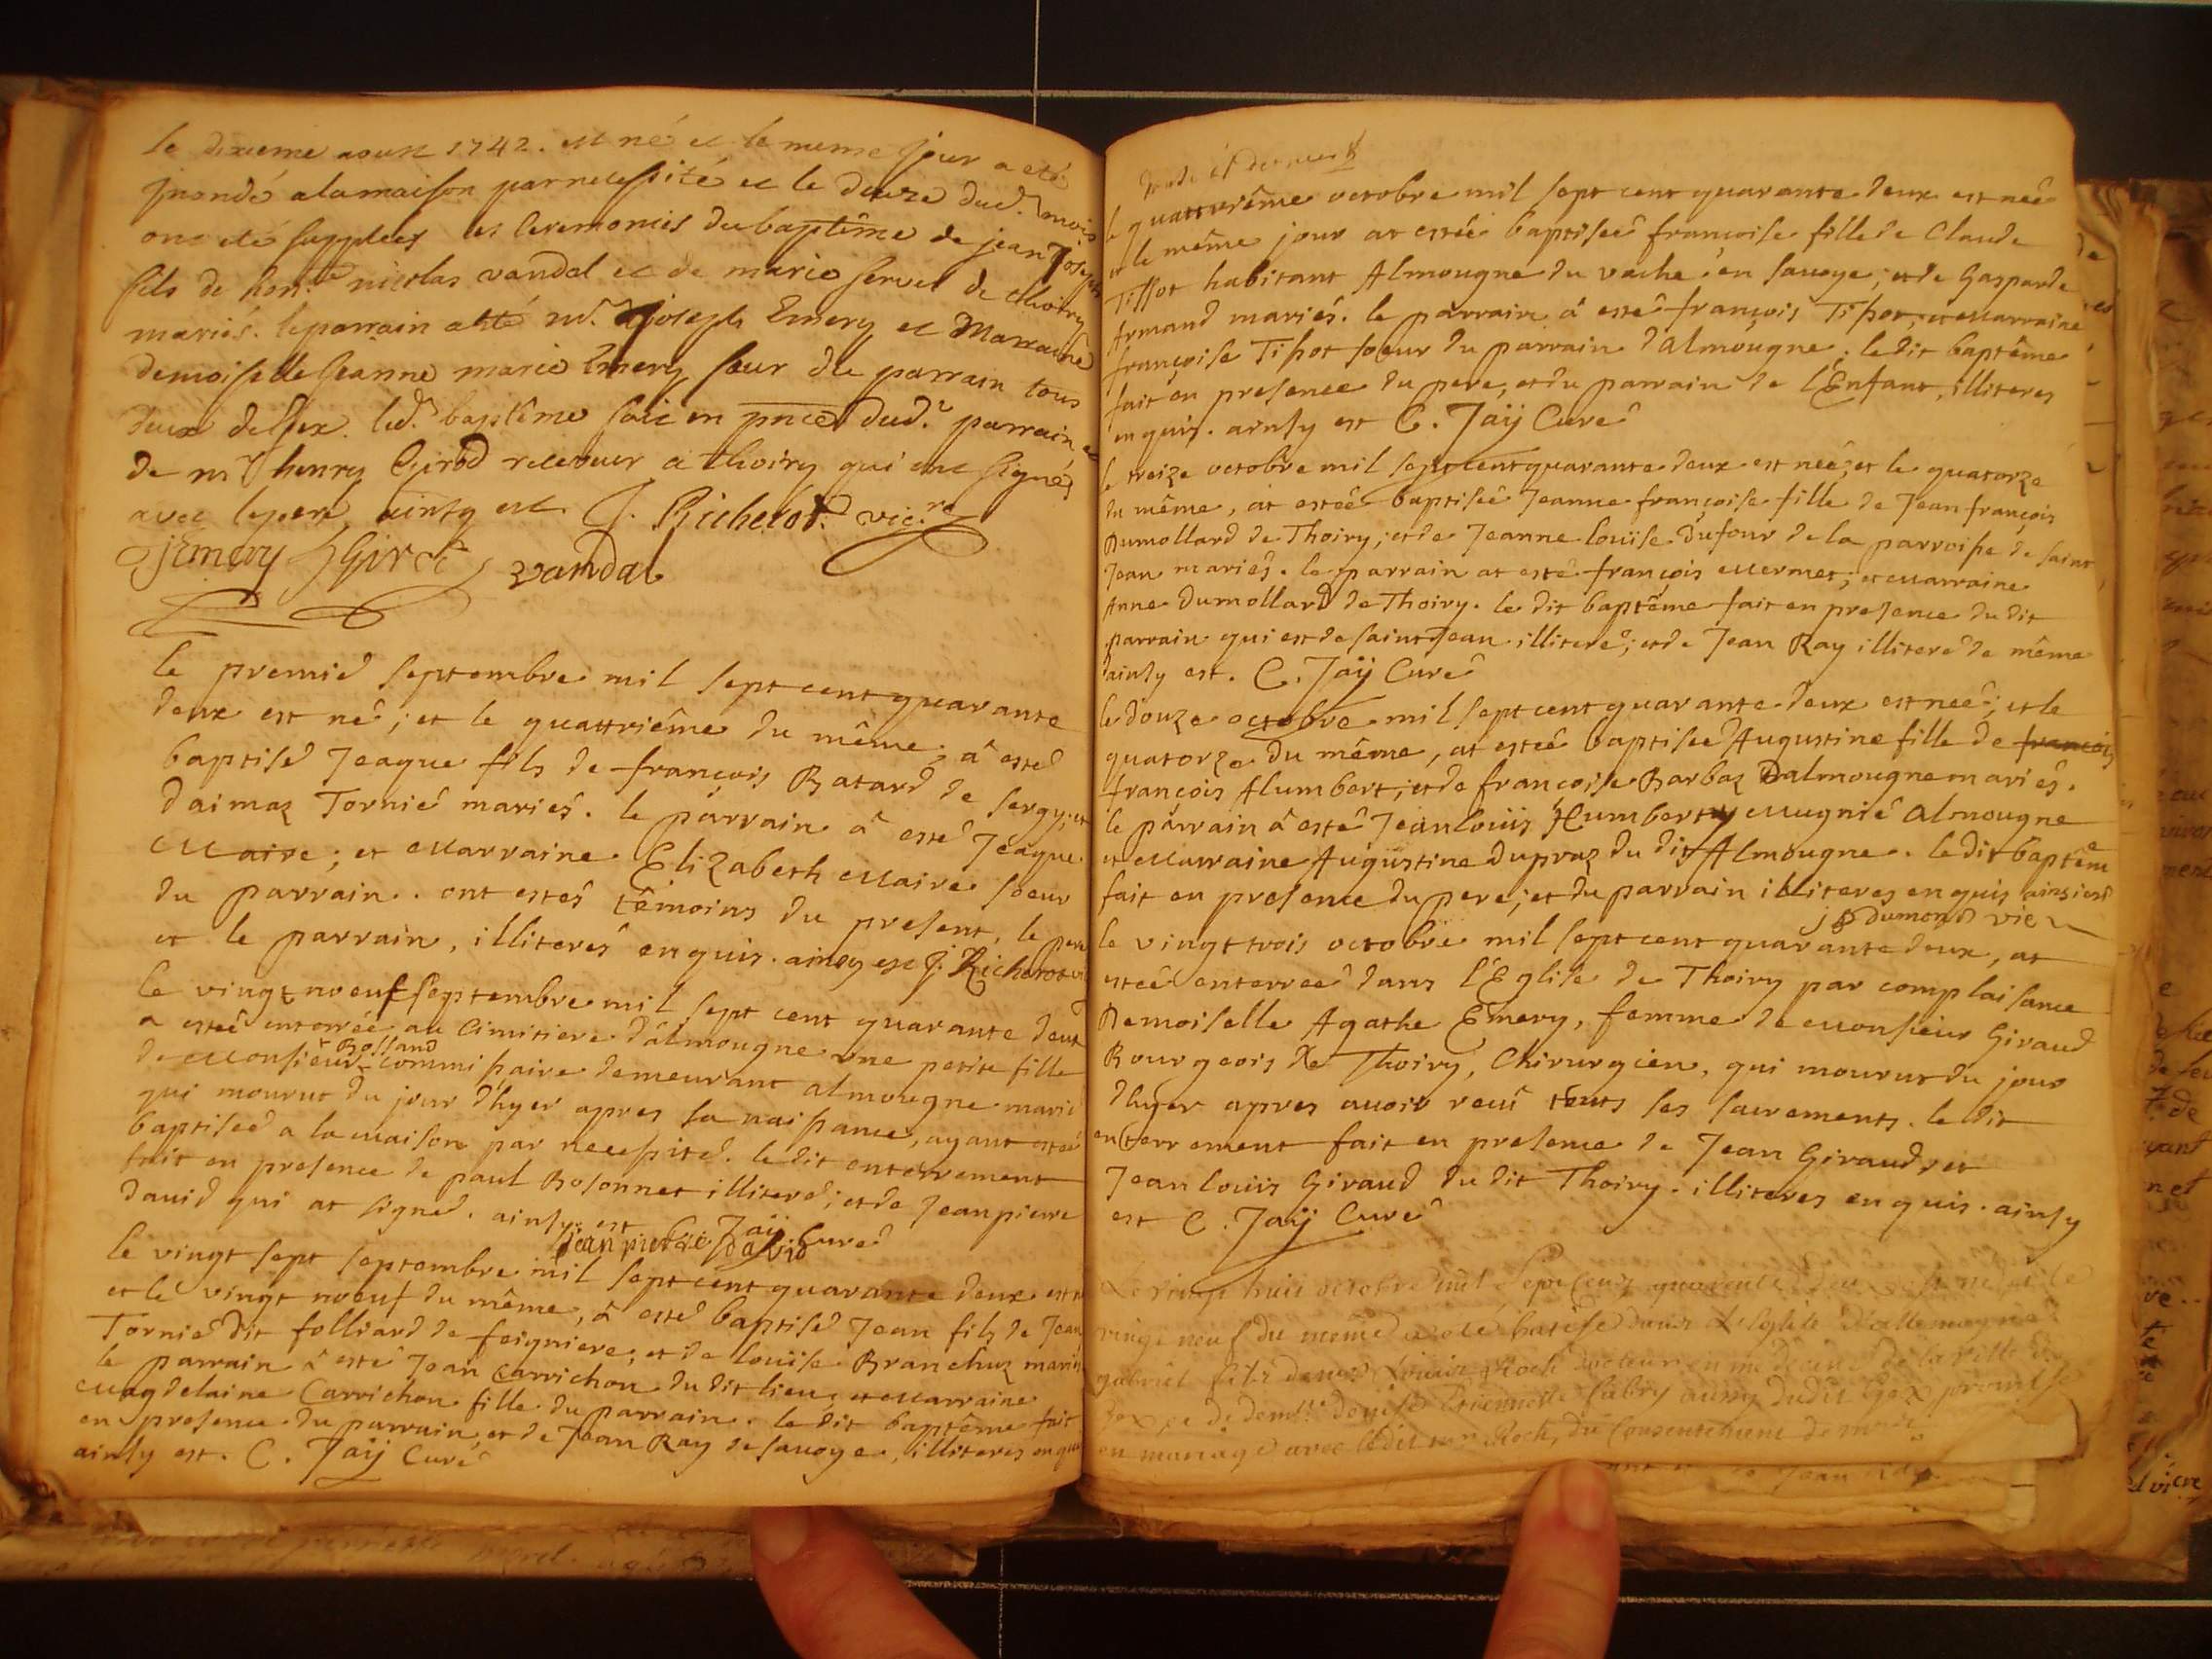 le dixieme aoust 1742. est né et le meme jour a eté
ondé a la maison par necessité et le douze dud. mois
ont eté supplées les ceremonies du baptême de jean Joseph
fils de hon. nicolas vandal et de marie servet de thoiry
mariés. le parrain a eté mr. joseph Emery et Marraine
demoiselle jeanne marie Emery sœur du parrain tous
deux de Gex. led. baptême fait en pnce dud. parrain et
de mr henry Girod receveur a thoiry qui ont signés
avec le pere ainsy est J. Richerot vic.re
jEmery Girod vandal
le premié septembre mil sept cent quarante
deux est né; et le quattriême du même, â esté
baptisé Jeaque fils de françois Batard de sergy; et
daimaz Tornié mariés. le parrain â esté Jeaque
Maire; et Marraine Elizabeth Maire soeur
du parrain. ont estés têmoins du present, le pere
et le parrain, illiterés enquis. ainsy est J. Richerot vi
le vingt noeuf septembre mil sept cent quarante deux
a esteê enterrée au cimitiere d'almougne une petite fille
Rolland
de Monsieur commissaire demeurant almougne marié
qui mourut du jour d'hyer apres sa naissance, ayant esteé
baptiseé a la maison par necessité. le dit enterrement
fait en presence de paul Bosonnet illiteré; et de Jean pierre
david qui at signé. ainsy est C. Jaÿ Curé
jean pierre david
le vingt sept septembre mil sept cent quarante deux est né
et le vingt noeuf du même, â esté baptisé Jean fils de Jean
Tornié dit folliard de feigniere; et de louïse Branchuz mariés
le parrain â esté Jean Carrichon du dit lieu; et Marraine
Magdelaine Carrichon fille du parrain. le dit baptême fait
en presence du parrain, et de Jean Ray de savoye, illiteres enquis
ainsy est. C. Jaÿ Curé
le quattriême octobre mil sept cent quarante deux est neê
et le même jour at esteê baptiseê francoise fille de Claude
Tissot habitant Almougne du vache en savoye; et de Gasparde
Armand mariés. le parrain â esté françois Tissot; et Marraine
françoise Tissot soeur du parrain d'almougne. le dit baptême
fait en presence du pere, et du parrain de l'Enfant, illiteres
enquis. ainsy est C. Jaÿ Curé
le treize octobre mil sept cent quarante deux est neê; et le quatorze
du même, at esteê baptiseê Jeanne françoise fille de Jean françois
Dumollard de Thoiry; et de Jeanne louïse Dufour de la parroisse de saint
Jean mariés. le parrain at esté françois Mermet; et Marraine
Anne Dumollard de Thoiry. le dit baptême fait en presence du dit
parrain qui est de saint Jean illiteré; et de Jean Ray illiteré de même
ainsy est. C. Jaÿ Curé
le douze octobre mil sept cent quarante deux est neê; et le
quatorze du même, at esteê baptiseê Augustine fille de françois
françois Alumbert; et de francoise Barbaz Dalmougne mariés.
le parrain â esté Jean louïs Humbert Mugnié Almougne
et Marraine Augustine Dupraz du dit Almougne. le dit baptême
fait en presence du pere; et du parrain illiteres enquis ainsi est
j dumond vic
le vingt trois octobre mil sept cent quarante deux, at
esteê enterreê dans l'Eglise de Thoiry par complaisance
Demoiselle Agathe Emery, femme de Monsieur Giraud
Bourgeois de Thoiry, Chirurgien, qui mourut du jour
d'hyer apres avoir receu touts ses sacrements. le dit
enterrement fait en presence de Jean Giraud, et
Jean louïs Giraud du dit Thoiry. illiteres enquis. ainsy
est C. Jaÿ Curé
Le vingt huit octobre mil sept cent quarente deux est né et le
vingt neuf du même a eté batisé dans L'eglise d'allemogne
gabriel fils de Louis Roch docteur en medecine de la ville de
Gex et de demlle Fabry aussy dudit Gex promise
en mariage avec ledit mr Roch, du consentement de